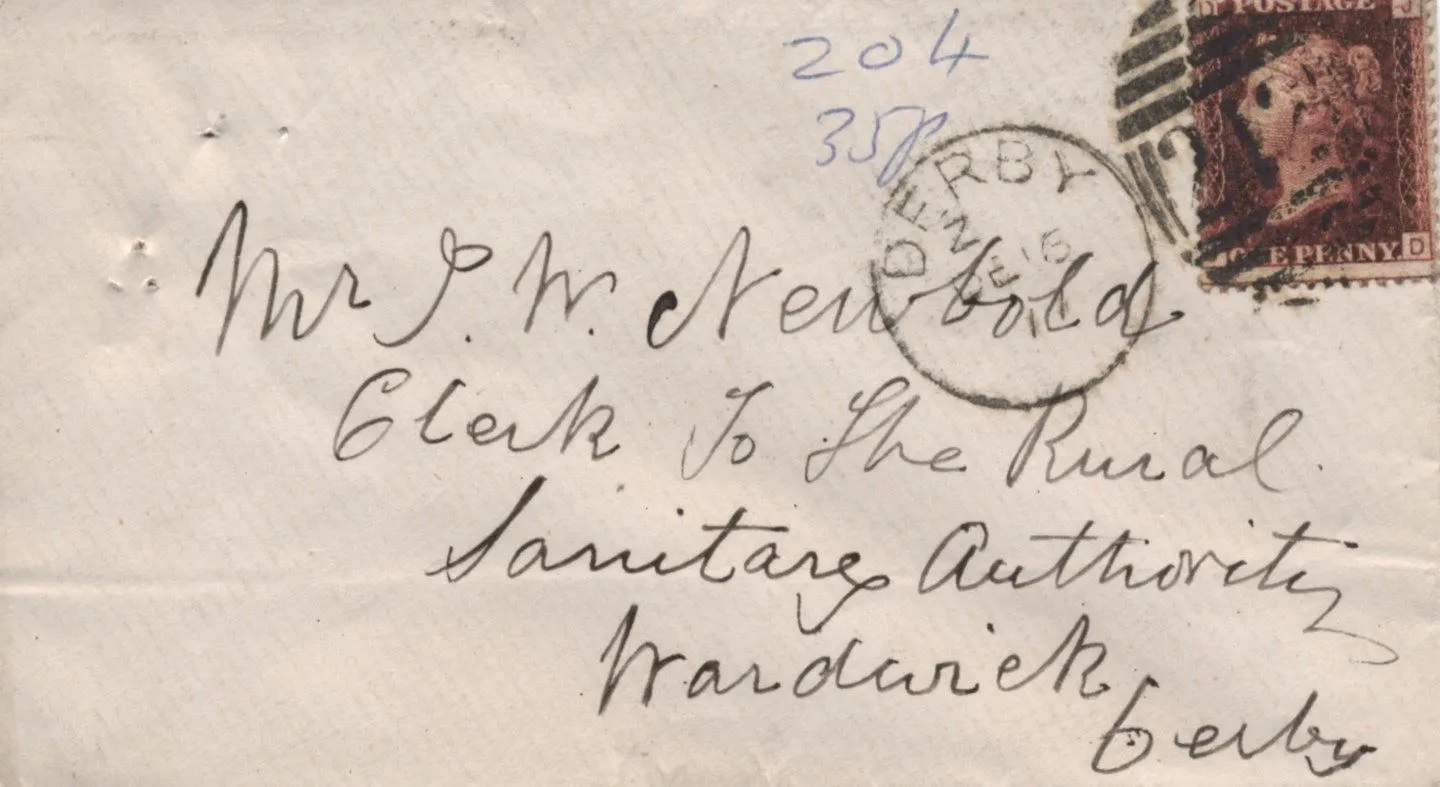 204
35p
POSTAGE J
ONE PENNY. D
DERBY
N
DE 16
Mr J. W. Newbold
Clerk To The Rural
Sanitary Authority
Wardwick
Derby